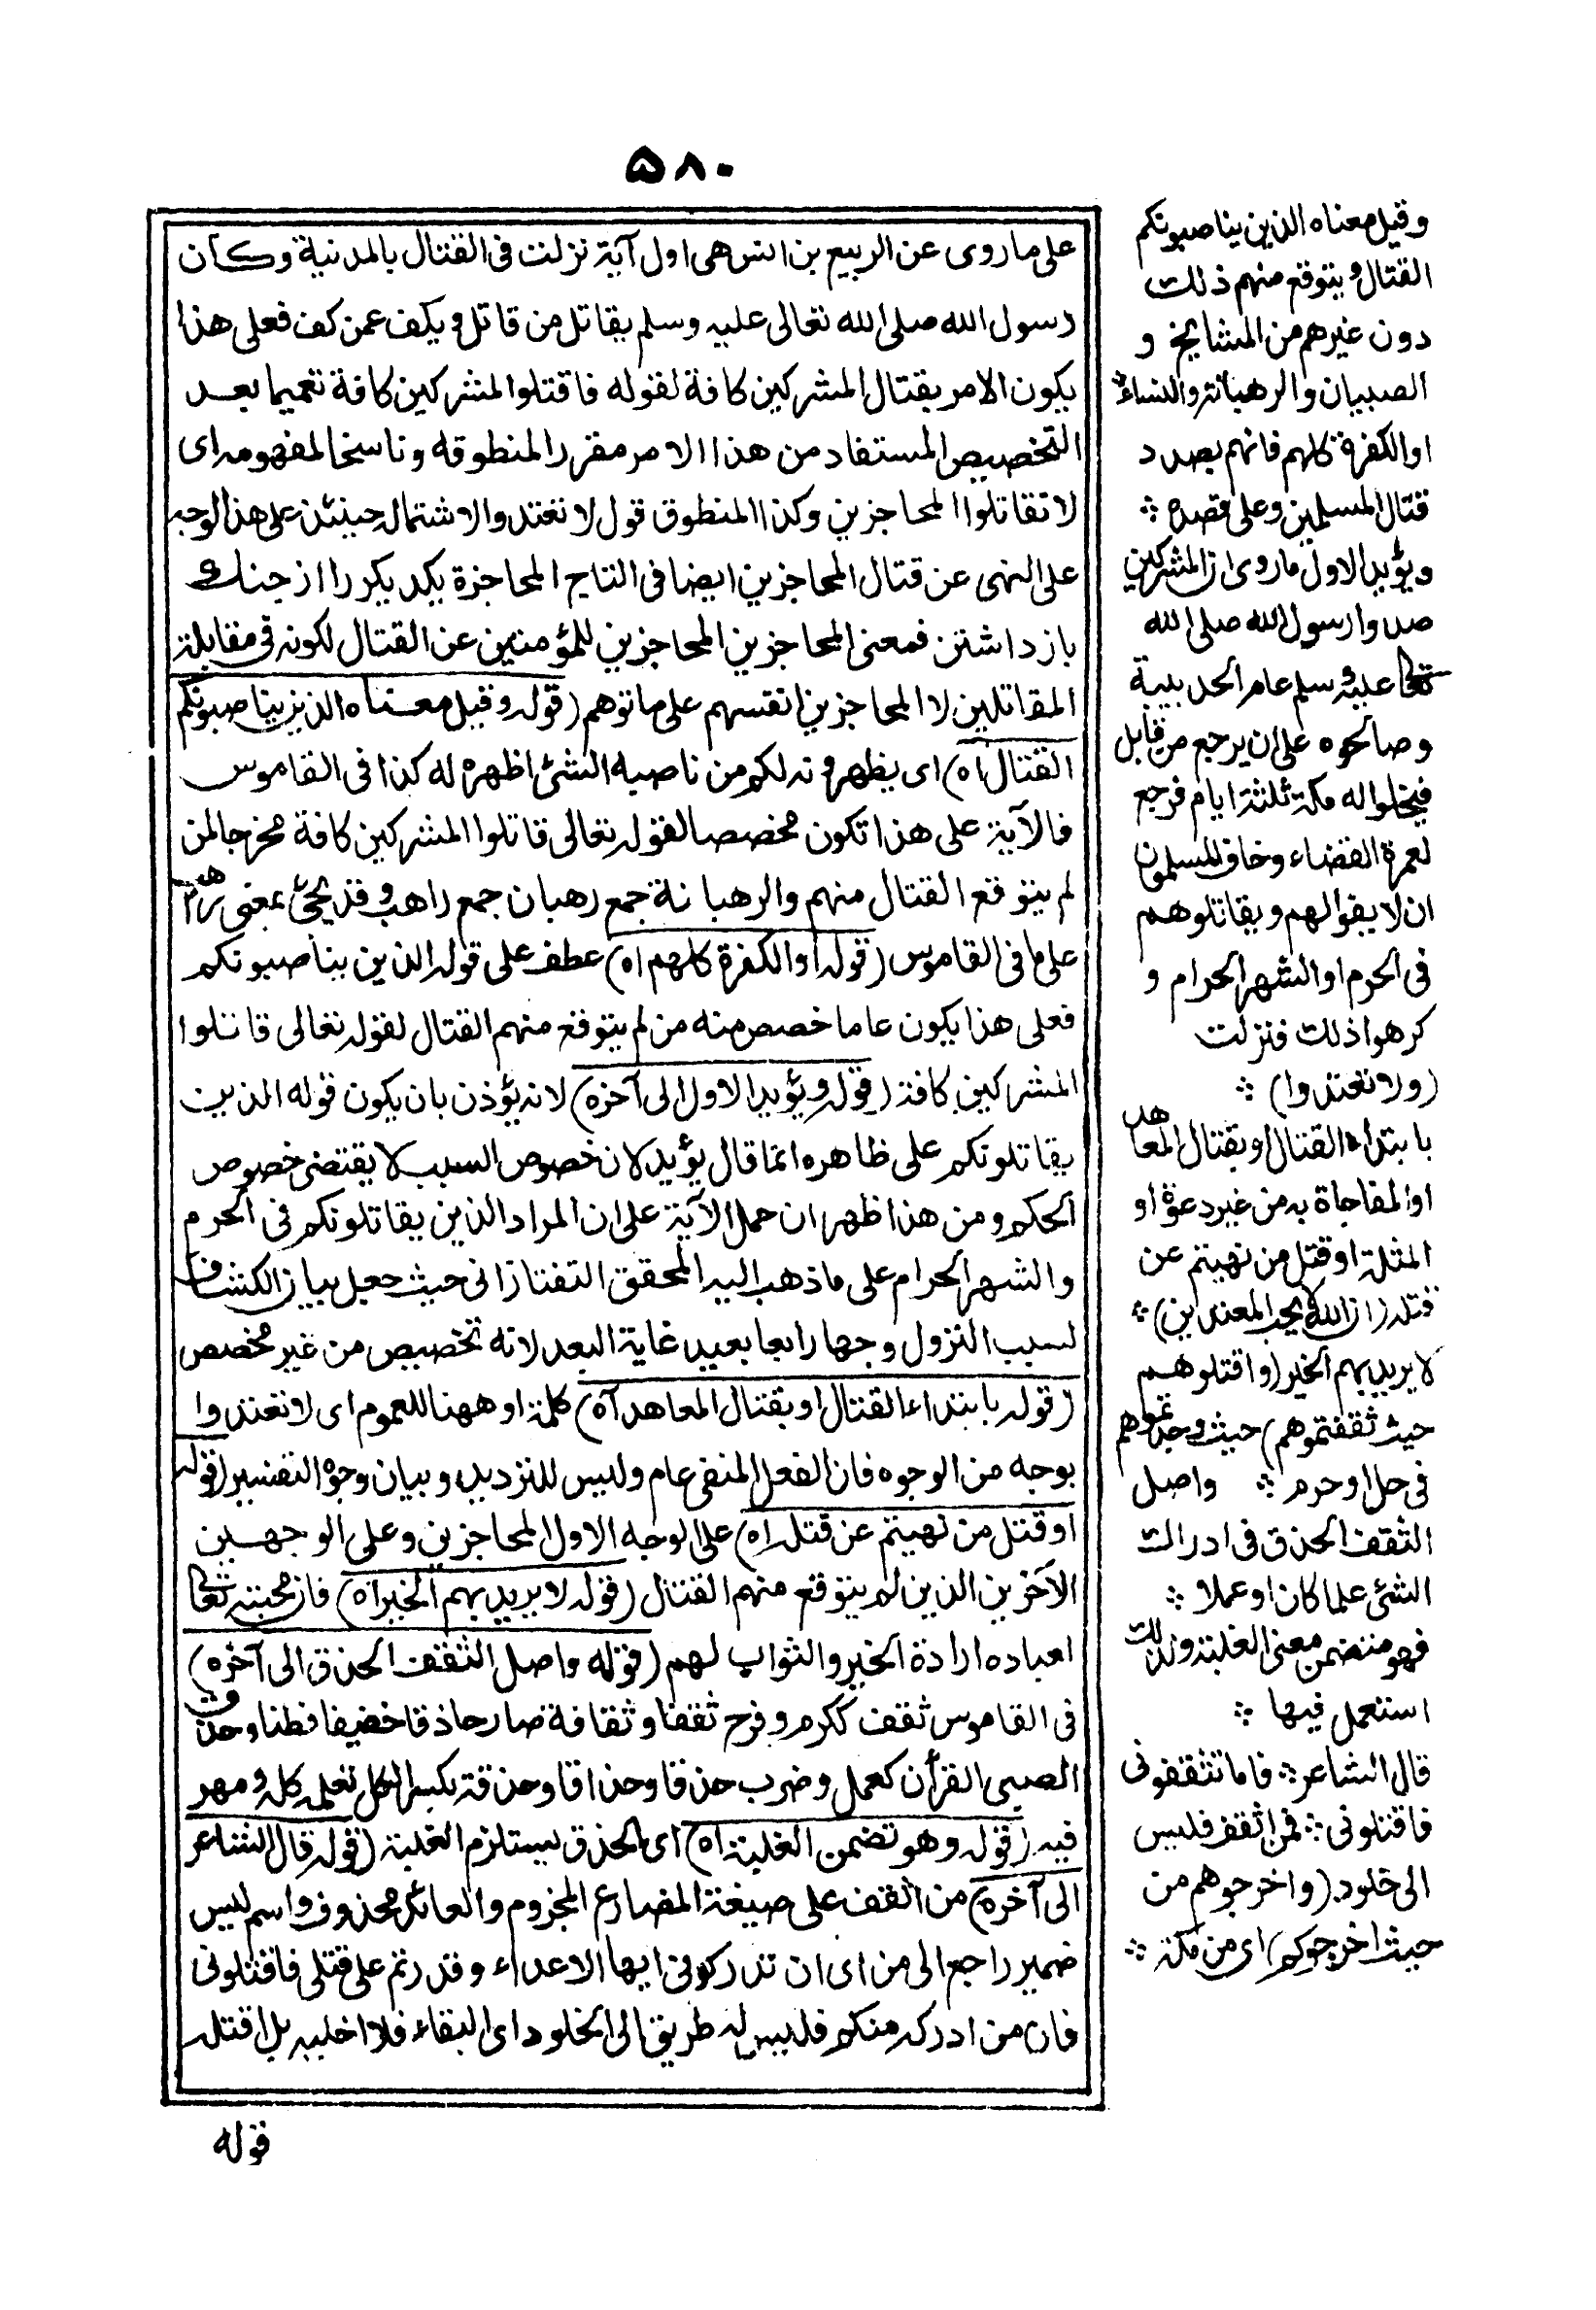 ٥٨٠
على ما روى عن الربيع بن انس هى اول آية نزلت فى القتال بالمدنية وكان
رسول الله صلى الله تعالى عليه وسلم يقاتل من قاتل ويكف عمن كف فعلى هذا
يكون الامر بقتال المشركين كافة لقوله فاقتلوا المشركين كافة تعميما بعد
التخصيص المستفاد من هذا الامر مقررا لمنطوقه وناسخا لمفهومه اى
لا تقاتلوا المحاجزين وكذا المنطوق قول لا تعتدوا لاشتماله حينئذ على هذا الوجه
على النهى عن قتال المحاجزين ايضا فى التاج المحاجزة يكديكر را از جنك
باز داشتن فمعنى المحاجزين المحاجزين للمؤمنين عن القتال لكونه فى مقابلة
المقاتلين لا المحاجزين انفسهم على ما توهم (قوله وقيل معناه الذين يناصبونكم
القتال اه) اى يظهرونه لكم من ناصبه الشئ اظهره له كذا فى القاموس
فالآية على هذا تكون مخصصا لقوله تعالى قاتلوا المشركين كافة مخرجا لمن
لم يتوقع القتال منهم والرهبانة جمع رهبان جمع راهب وقد يجئ بمعنى
على ما فى القاموس (قوله او الكفرة كلهم اه) عطف على قوله الذين يناصبونكم
فعلى هذا يكون عاما خصص منه من لم يتوقع منهم القتال لقوله تعالى قاتلوا
المشركين كافة (قوله ويؤيد الاول الى آخره) لانه يؤذن بان يكون قوله الذين
يقاتلونكم على ظاهره انما قال يؤيد لان خصوص السبب لا يقتضى خصوص
الحكم ومن هذا ظهر ان حمل الآية على ان المراد الذين يقاتلونكم فى الحرم
والشهر الحرام على ما ذهب اليه المحقق التفتازانى حيث جعل بيان الكشاف
لسبب النزول وجها رابعا بعيد غاية البعد لانه تخصيص من غير مخصص
(قوله بابتداء القتال او بقتال المعاهد آه) كلمة او ههنا للعموم اى لا تعتدوا
بوجه من الوجوه فان الفعل المنفى عام وليس للترديد وبيان وجوه التفسير (قوله
او قتل من نهيتم عن قتله اه) على الوجه الاول المحاجزين وعلى الوجهين
الآخرين الذين لم يتوقع منهم القتال (قوله لا يريد بهم الخير اه) فان محبته تعالى
لعباده ارادة الخير والثواب لهم (قوله واصل الثقف الحذق الى آخره)
فى القاموس ثقف ككرم وفرح ثقفا وثقافة صار حاذقا خفيفا فطنا وحذق
الصبى القرأن كعمل وضرب حذقا وحذاقا وحذقة بكسر الكل تعلمه كله ومهر
فيه (قوله وهو تضمن الغلبة اه) اى الحذق يستلزم الغلبة (قوله قال الشاعر
الى آخره) من اثقف على صيغة المضارع المجزوم والعائد محذوف واسم ليس
ضمير راجع الى من اى ان تدركونى ايها الاعداء وقدرتم على قتلى فاقتلونى
فان من ادركه منكم فليس له طريق الى الخلود اى البقاء فلا اخليه بل اقتله
قوله
وقيل معناه الذين يناصبونكم
القتال ويتوقع منهم ذلك
دون غيرهم من المشايخ و
الصبيان والرهبانة والنساء
او الكفرة كلهم فانهم بصدد
قتال المسلمين وعلى قصده ؞
ويؤيد الاول ما روى ان المشركين
صدوا رسول الله صلى الله
تعالى عليه وسلم عام الحديبية
وصالحوه على ان يرجع من قابل
فيخلوا له مكة ثلثة ايام فرجع
لعمرة القضاء وخاف المسلمون
ان لا يفوا لهم ويقاتلوهم
فى الحرم او الشهر الحرام و
كرهوا ذلك فنزلت
(ولا تعتدوا) ؞
بابتداء القتال او بقتال المعاهد
او المفاجاة به من غير دعوة او
المثلة او قتل من نهيتم عن
قتله (ان الله لا يحب المعتدين) ؞
لا يريد بهم الخير (واقتلوهم
حيث ثقفتموهم) حيث وجدتموهم
فى حل او حرم ؞ واصل
الثقف الحذق فى ادراك
الشئ علما كان او عملا ؞
فهو متضمن معنى الغلبة ولذلك
استعمل فيها ؞
قال الشاعر ؞ فاما تثقفونى
فاقتلونى ؞ فمن اثقف فليس
الى خلود (واخرجوهم من
حيث اخرجوكم) اى من مكة ؞